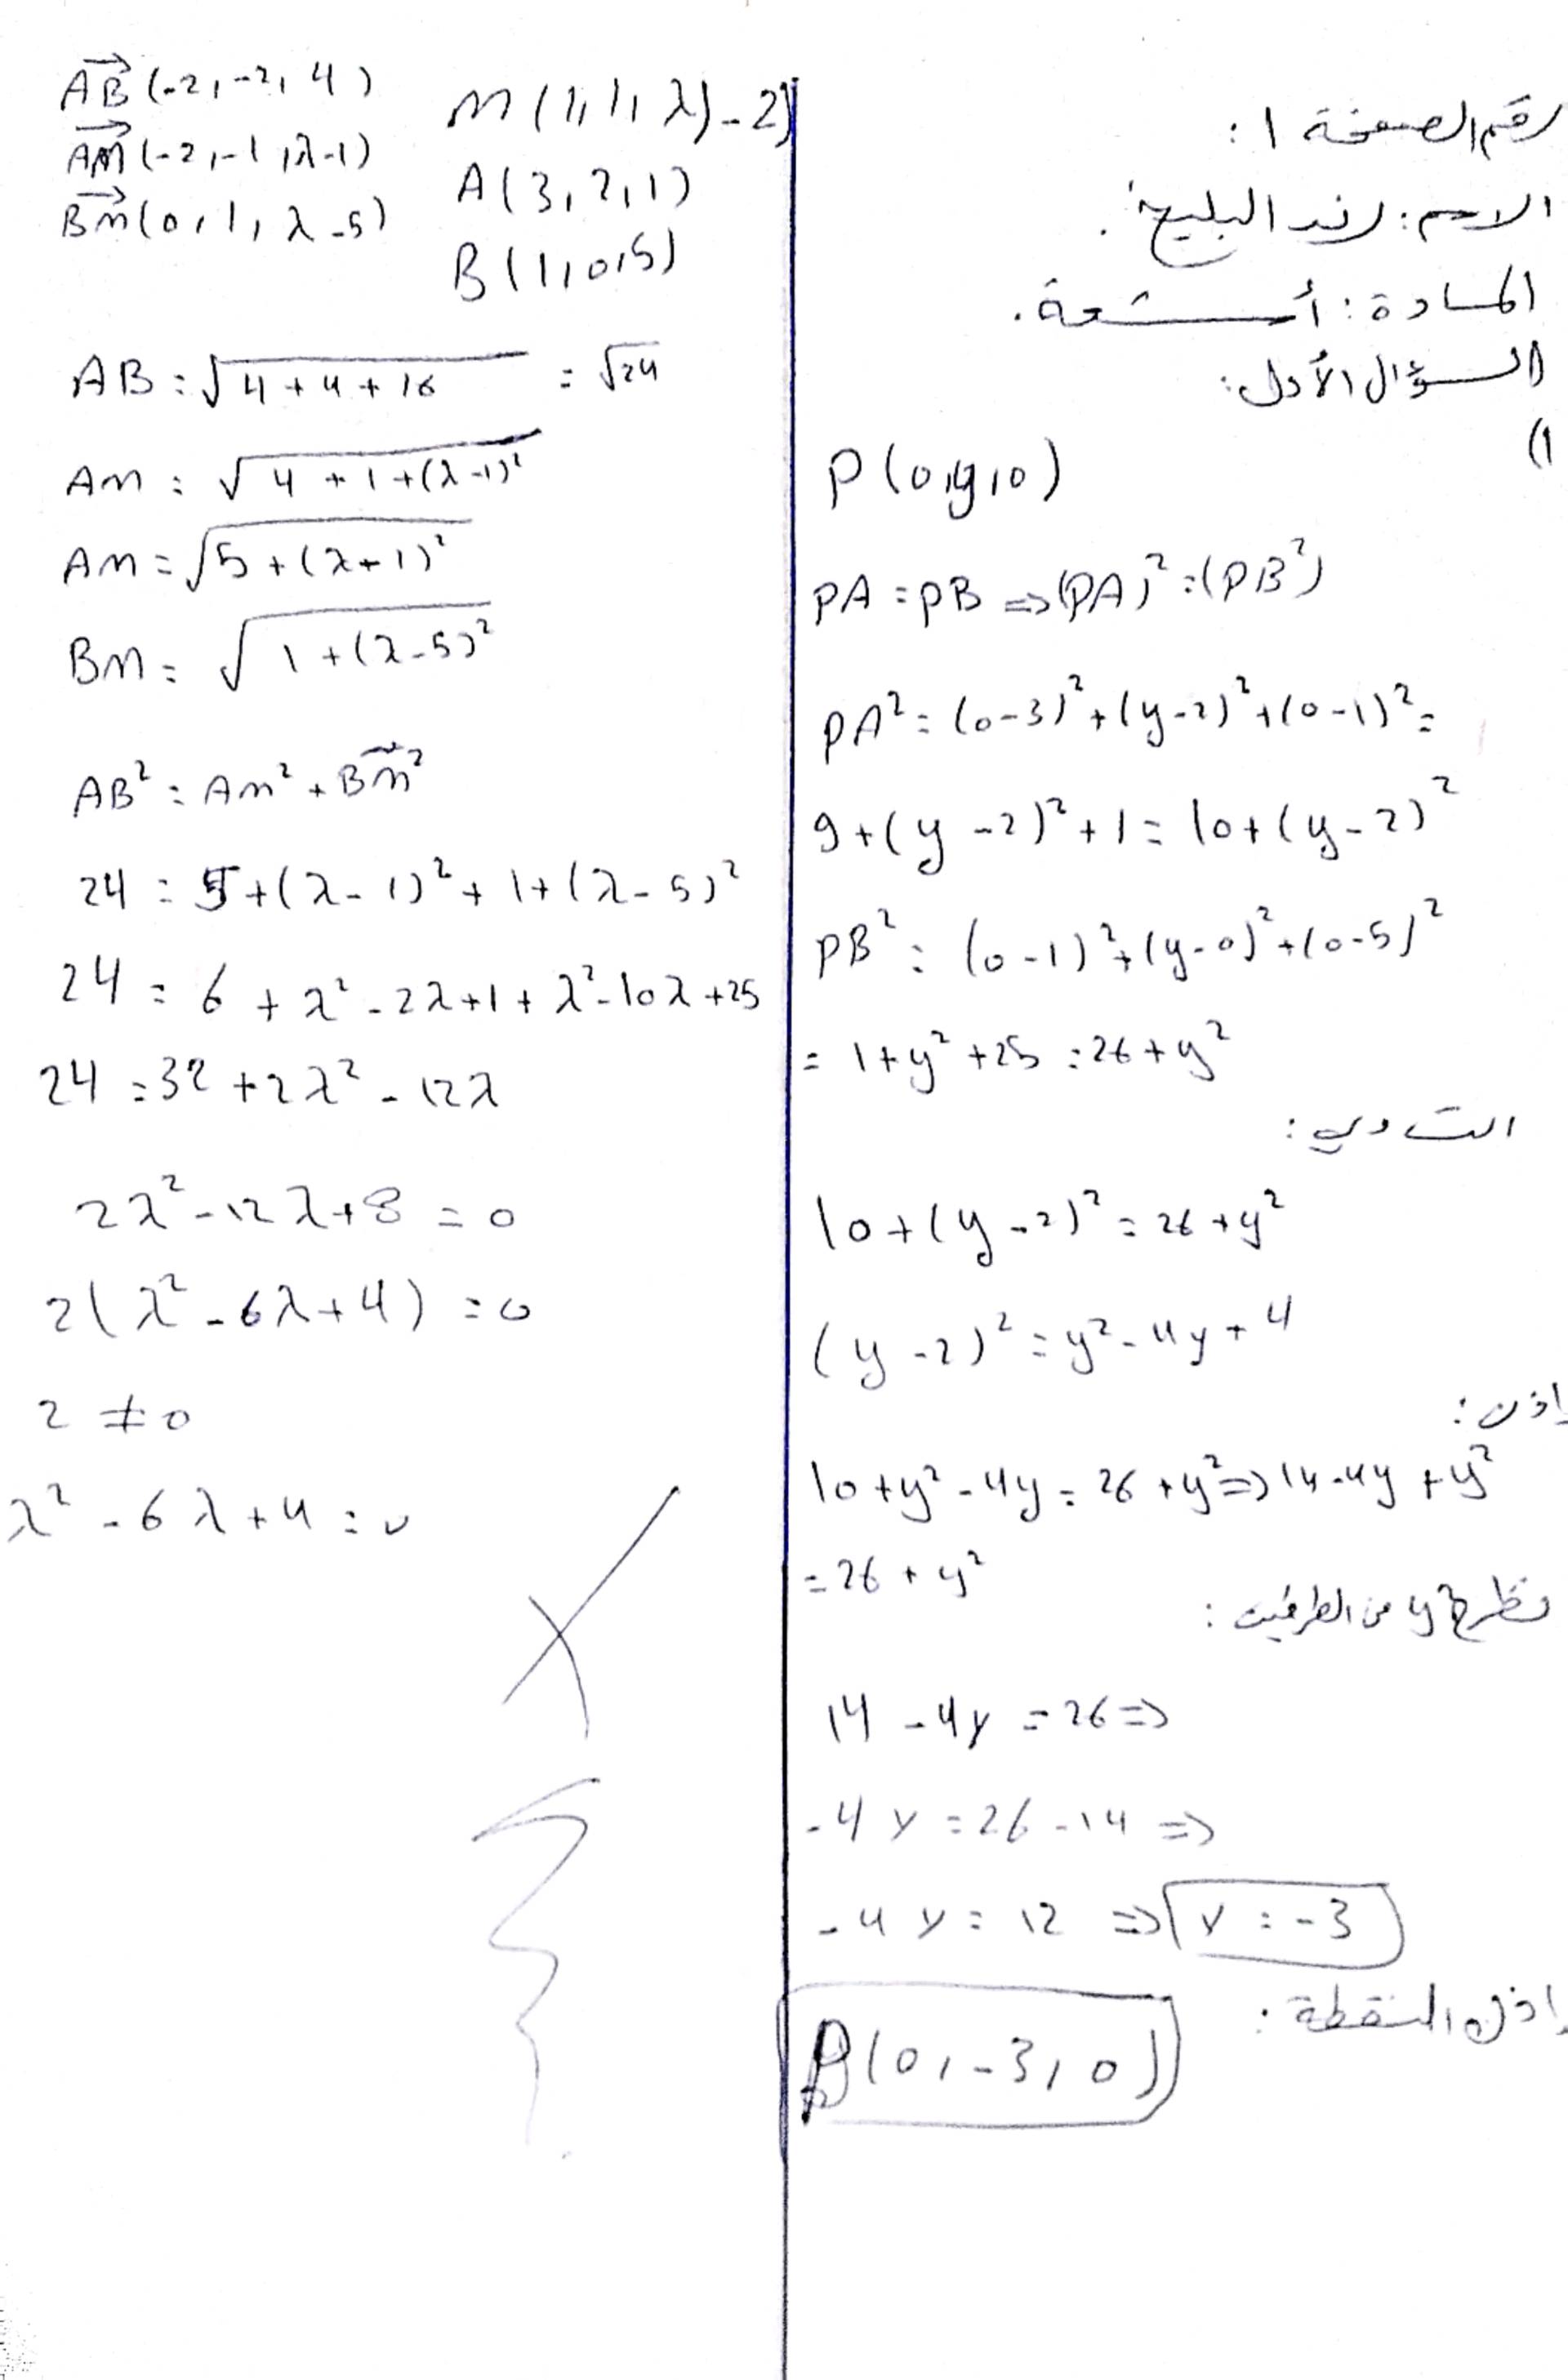 رقم الصفحة 1:
الاسم: رند البليخ.
المادة: أشعة.
السؤال الأول:
(1
P(0,y,0)
PA = PB => (PA)² = (PB²)
PA² = (0-3)² + (y-2)² + (0-1)² =
9 + (y-2)² + 1 = 10 + (y-2)²
PB² = (0-1)² + (y-0)² + (0-5)²
= 1 + y² + 25 = 26 + y²
التساوي:
10 + (y-2)² = 26 + y²
(y-2)² = y² - 4y + 4
اذن:
10 + y² - 4y = 26 + y² => 14 - 4y + y²
= 26 + y²
نطرح y² من الطرفين:
14 - 4y = 26 =>
-4y = 26 - 14 =>
-4y = 12 => y = -3
اذن النقطة:
P(0, -3, 0)
2) - M(1,1,λ)
A(3,2,1)
B(1,0,5)
AB(-2,-2,4)
AM(-2,-1,λ-1)
BM(0,1,λ-5)
AB = √4+4+16 = √24
AM = √4+1+(λ-1)²
AM = √5+(λ+1)²
BM = √1+(λ-5)²
AB² = AM² + BM²
24 = 5 + (λ-1)² + 1 + (λ-5)²
24 = 6 + λ² - 2λ + 1 + λ² - 10λ + 25
24 = 32 + 2λ² - 12λ
2λ² - 12λ + 8 = 0
2(λ² - 6λ + 4) = 0
2 ≠ 0
λ² - 6λ + 4 = 0